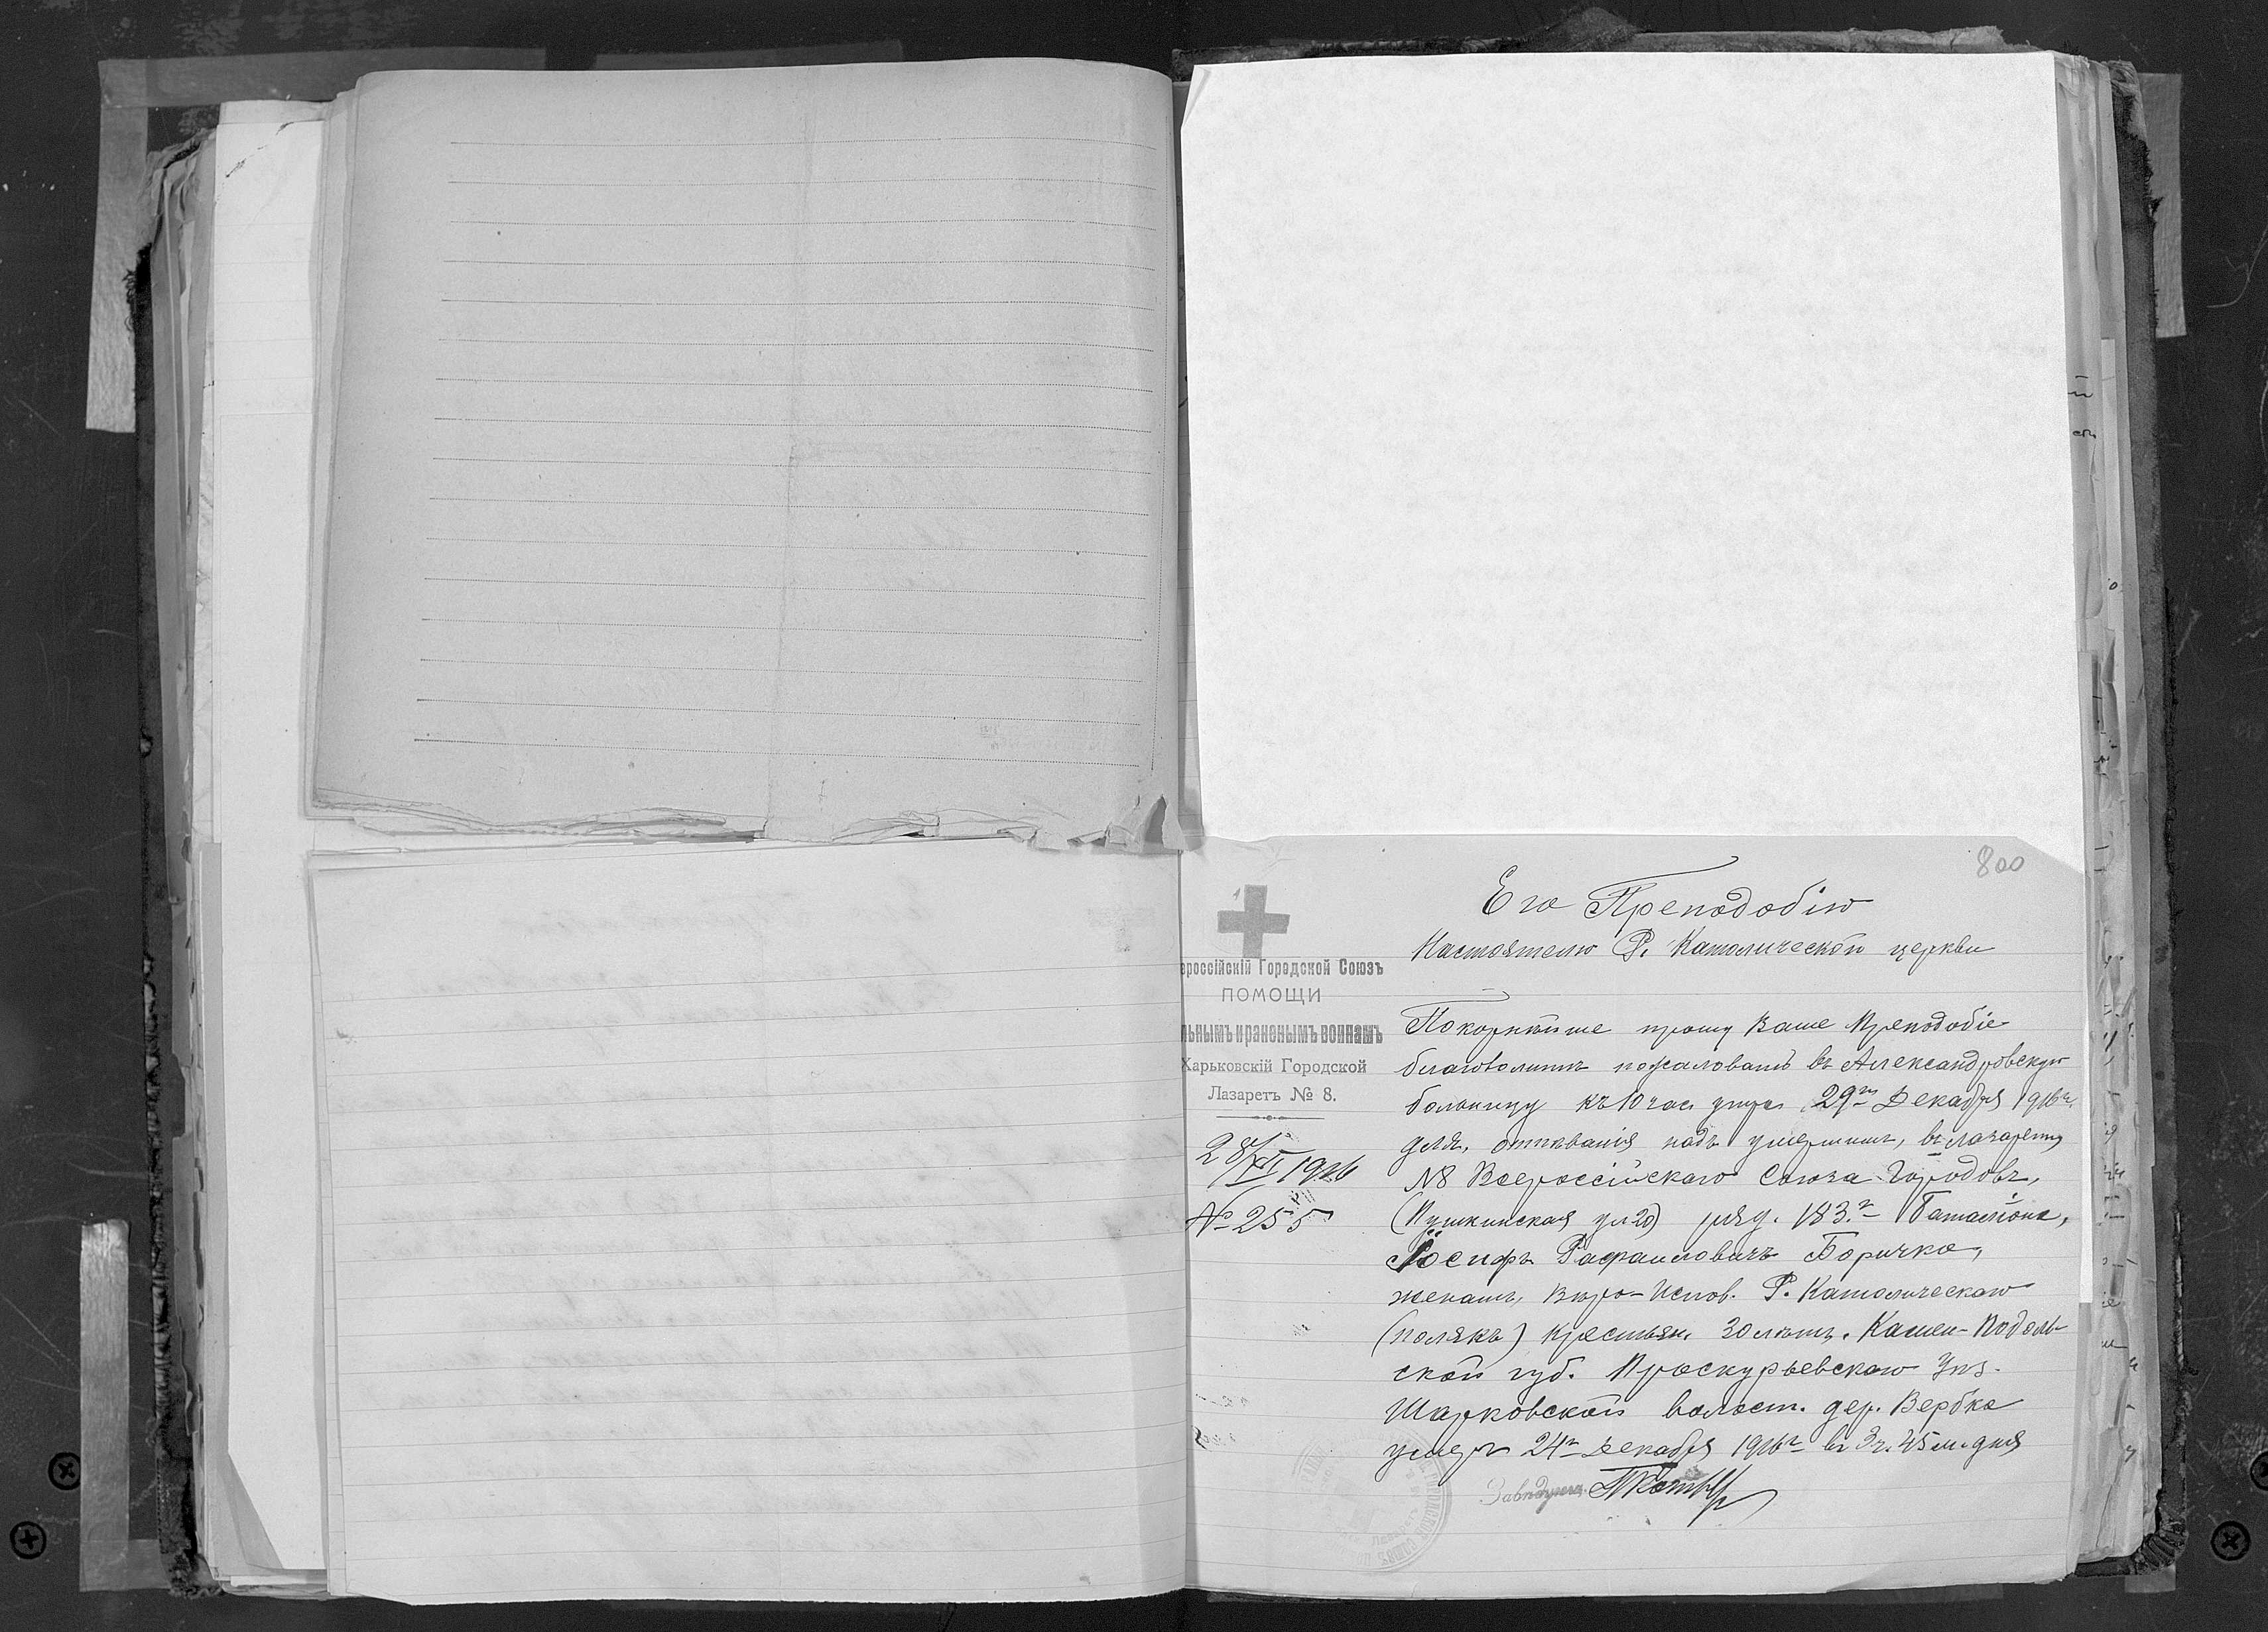 800
ероссійскій Городской Союзъ
ПОМОЩИ
льнымъ и раненымъ воинамъ
Харьковскій Городской
Лазаретъ № 8.
28/XII 1916
№ 255
Его Преподобію
Настоятелю Р. Католической церкви
Покорнѣйше прошу Ваше Преподобіе
благоволить пожаловать въ Александровскую
больницу къ 10 час утра 29го Декабря 1916 г.
для, отпѣванія надъ умершимъ, въ лазаретѣ
№8 Всероссійскаго Союза Городовъ,
(Пушкинская ул 20) ряд. 183.го Баталіона,
Іосифъ Рафаиловичъ Боричко,
женатъ, Вѣро-Испов. Р. Католическаго
(полякъ) крестьян. 30 лѣтъ. Камен-Подоль
ской губ. Проскурьевскаго Уѣз.
Шарковской волост. дер. Вербка
умеръ 24го Декабря 1916 г въ 3 ч. 45 м. дня
Завѣдующ.